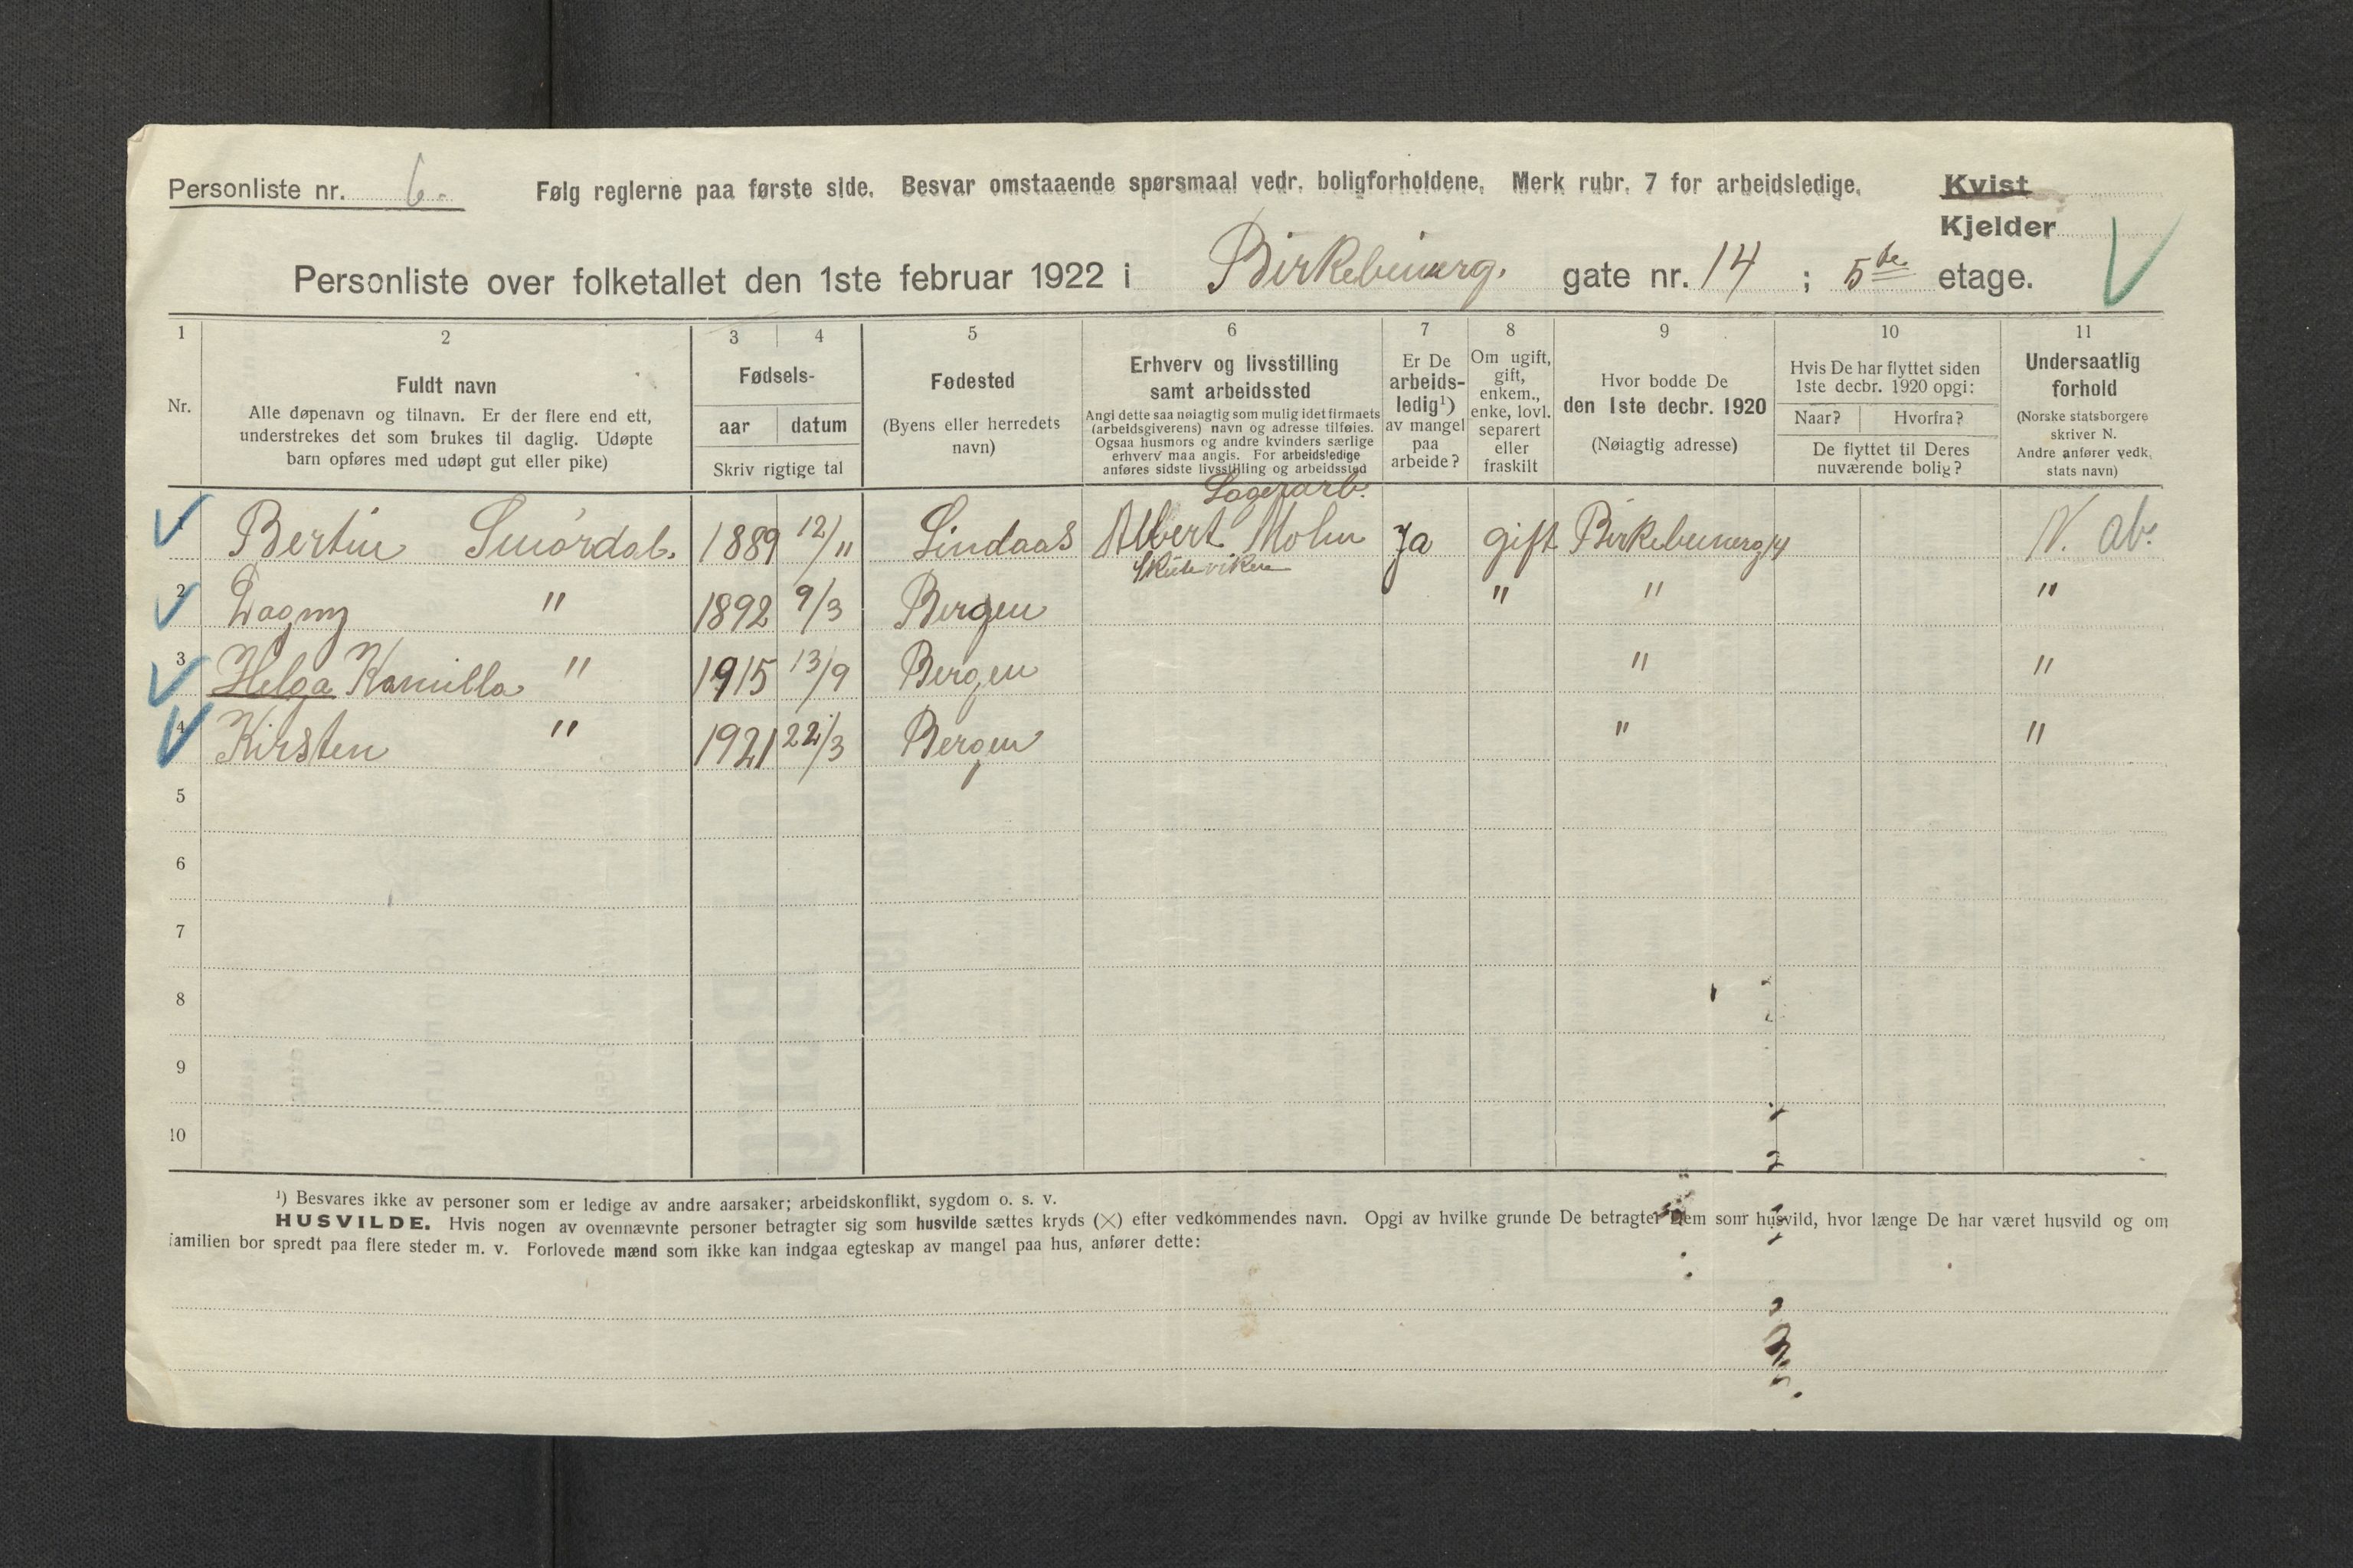 Personliste nr. 6.
Følg reglerne paa første side. Besvar omstaaende spørsmaal vedr. boligforholdene. Merk rubr. 7 for arbeidsledige.
Kvist
Kjelder
Personliste over folketallet den 1ste februar 1922 i Birkebeinerg. gate nr. 14 ; 5te etage.
1 2 3 4 5 6 7 8 9 10 11
Nr.
Fuldt navn
Alle døpenavn og tilnavn. Er der flere end ett,
understrekes det som brukes til daglig. Udøpte
barn opføres med udøpt gut eller pike)
Fødsels-
aar datum
Skriv rigtige tal
Fødested
(Byens eller herredets
navn)
Erhverv og livsstilling
samt arbeidssted
Angi dette saa nøiagtig som mulig idet firmaets
(arbeidsgiverens) navn og adresse tilføies.
Ogsaa husmors og andre kvinders særlige
erhverv maa angis. For arbeidsledige
anføres sidste livsstilling og arbeidssted
Er De
arbeids-
ledig¹)
av mangel
paa
arbeide?
Om ugift,
gift,
enkem.,
enke, lovl.
separert
eller
fraskilt
Hvor bodde De
den 1ste decbr. 1920
(Nøiagtig adresse)
Hvis De har flyttet siden
1ste decbr. 1920 opgi:
Naar? Hvorfra?
De flyttet til Deres
nuværende bolig?
Undersaatlig
forhold
(Norske statsborgere
skriver N.
Andre anfører vedk.
stats navn)
Lagerarb.
1 Bertin Smørdal. 1889 12/11 Lindaas Albert Mohn Ja gift Birkebeinerg 14 N. ab.
Skuteviken
2 Dagny " 1892 9/3 Bergen " " "
3 Helga Kamilla " 1915 13/9 Bergen " "
4 Kirsten " 1921 22/3 Bergen " "
5
6
7
8
9
10
¹) Besvares ikke av personer som er ledige av andre aarsaker; arbeidskonflikt, sygdom o. s. v.
HUSVILDE. Hvis nogen av ovennævnte personer betragter sig som husvilde sættes kryds (×) efter vedkommendes navn. Opgi av hvilke grunde De betragter Dem som husvild, hvor længe De har været husvild og om
familien bor spredt paa flere steder m. v. Forlovede mænd som ikke kan indgaa egteskap av mangel paa hus, anfører dette: